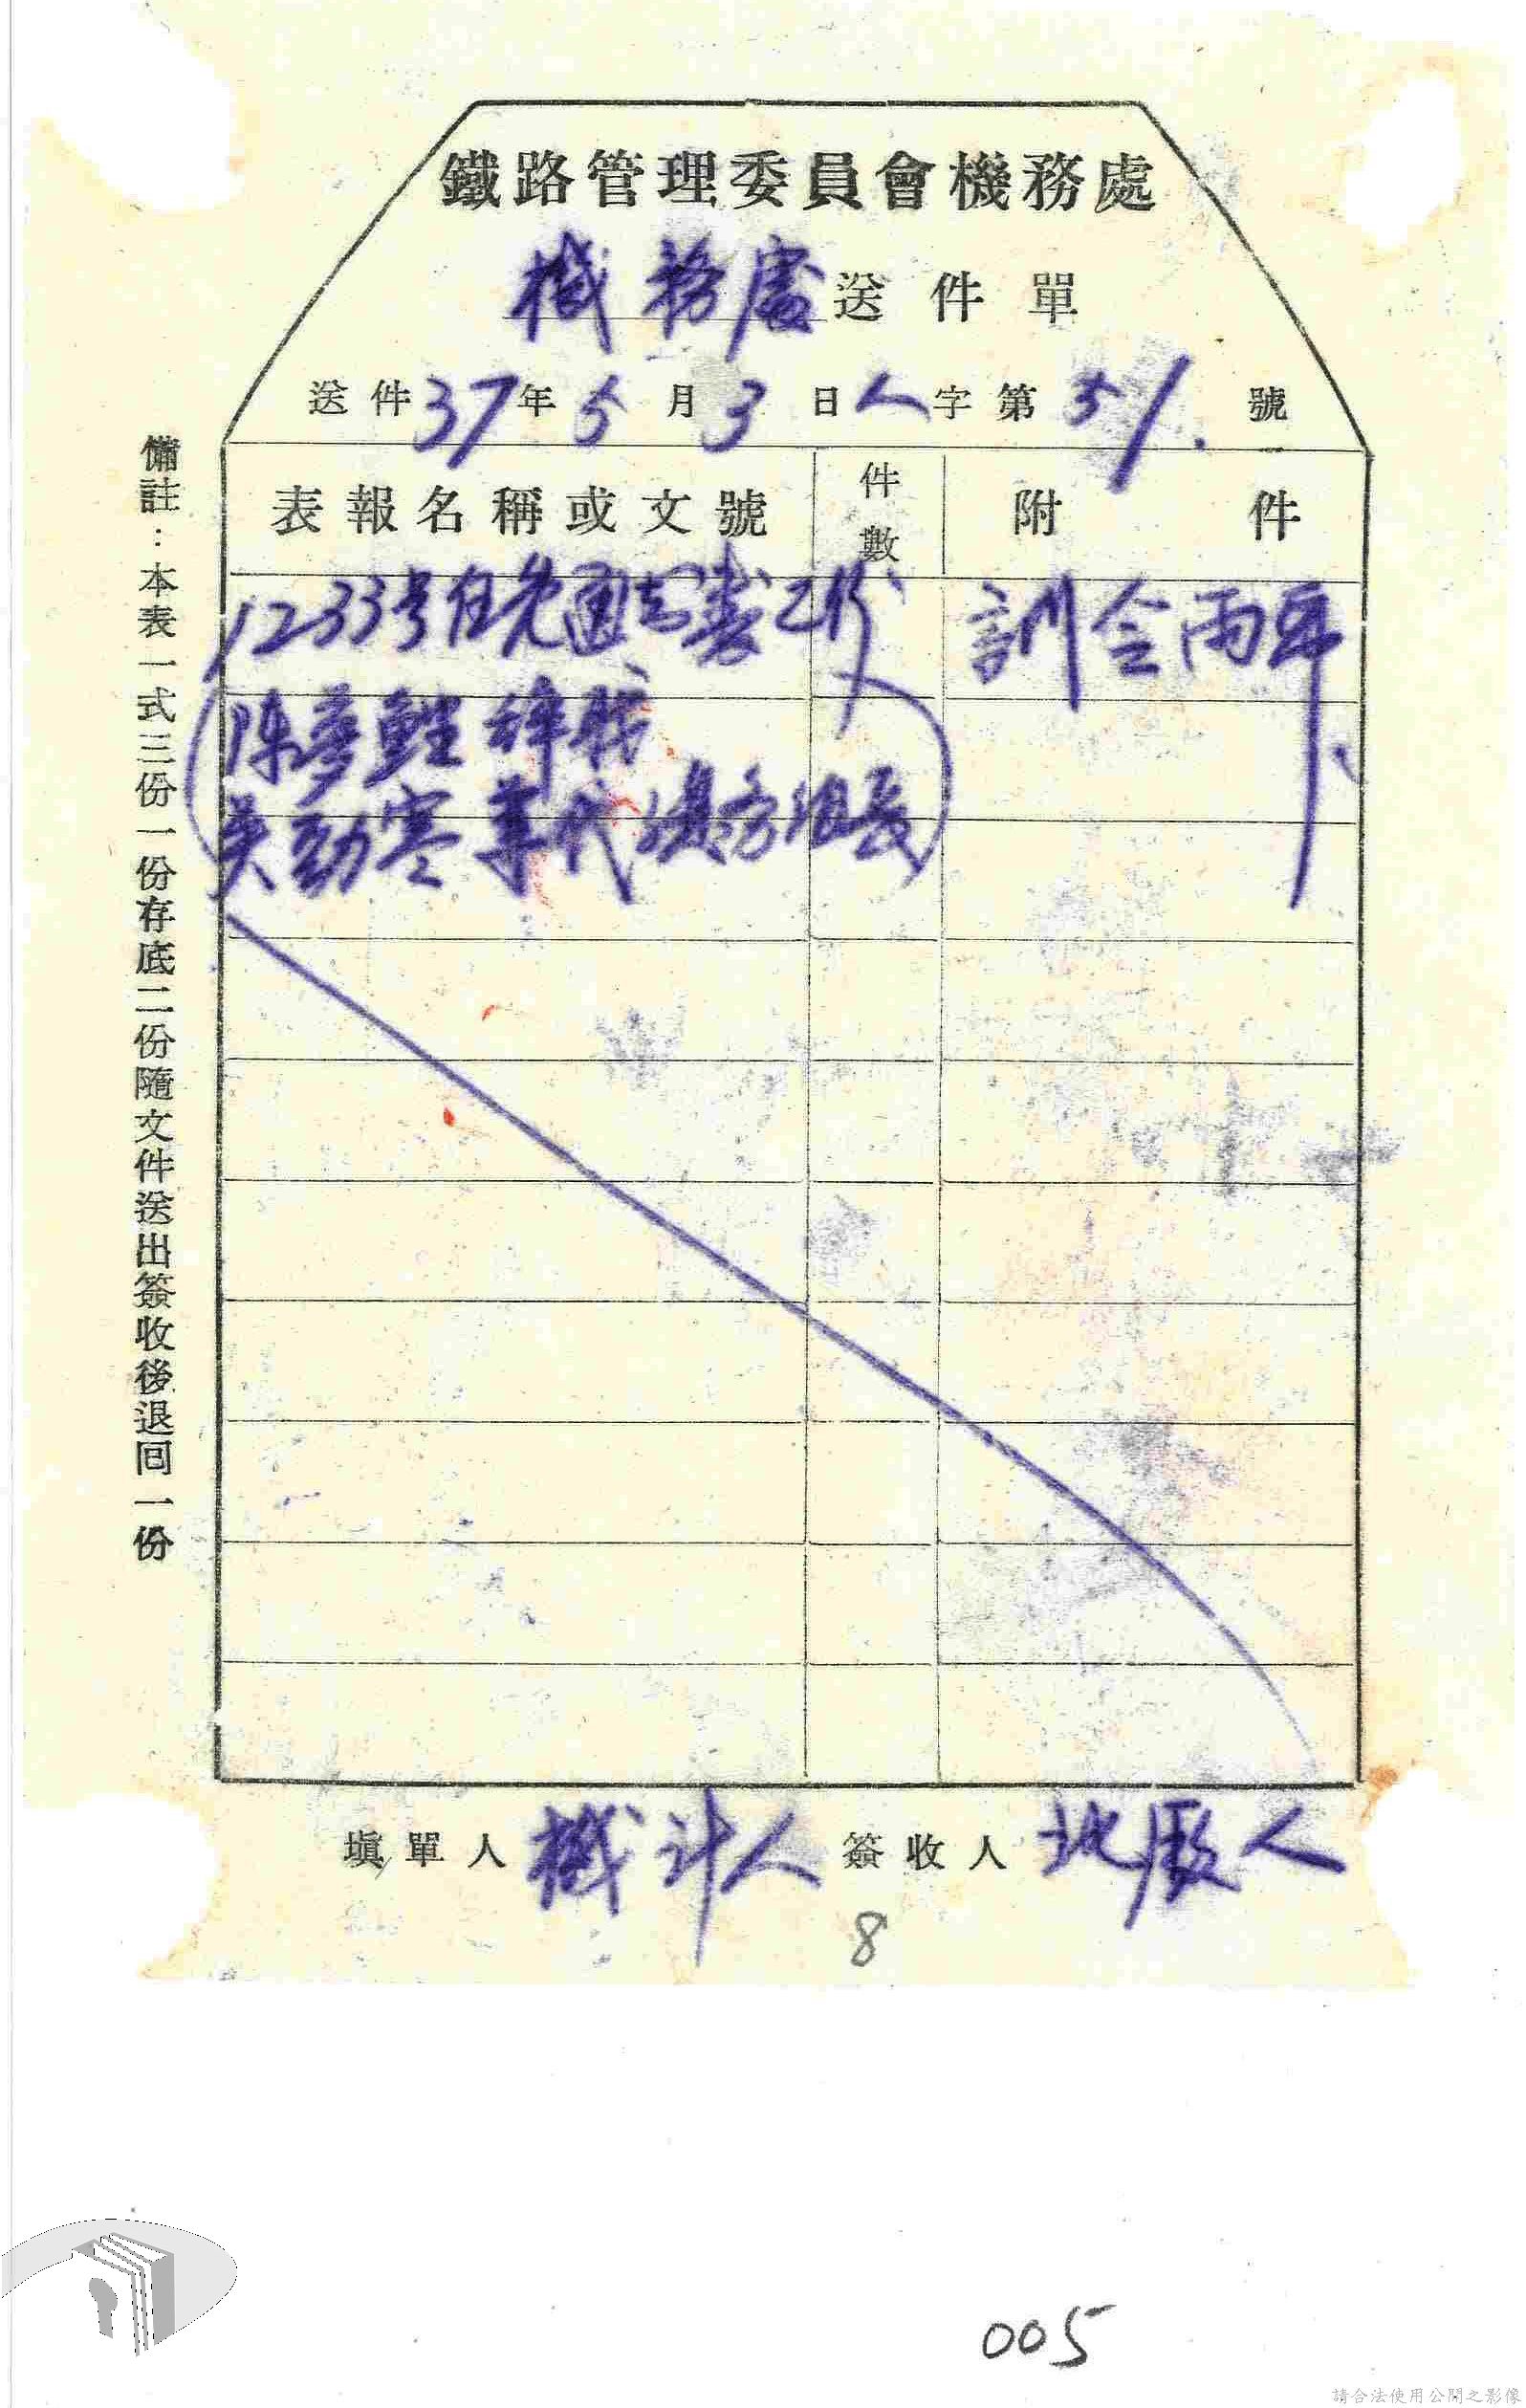 鐵路管理委員會機務處
機務處送件單
送件37年5月3日人字第51.號
表報名稱或文號 件數 附件
1233号任免通知書乙份 訓令兩年
陈夢鯉辞职
吳勁寒 代 務組長
填單人 機計人 簽收人 北廠人
8
備註：本表一式三份一份存底二份隨文件送出簽收後退回一份
005
請合法使用公開之影像